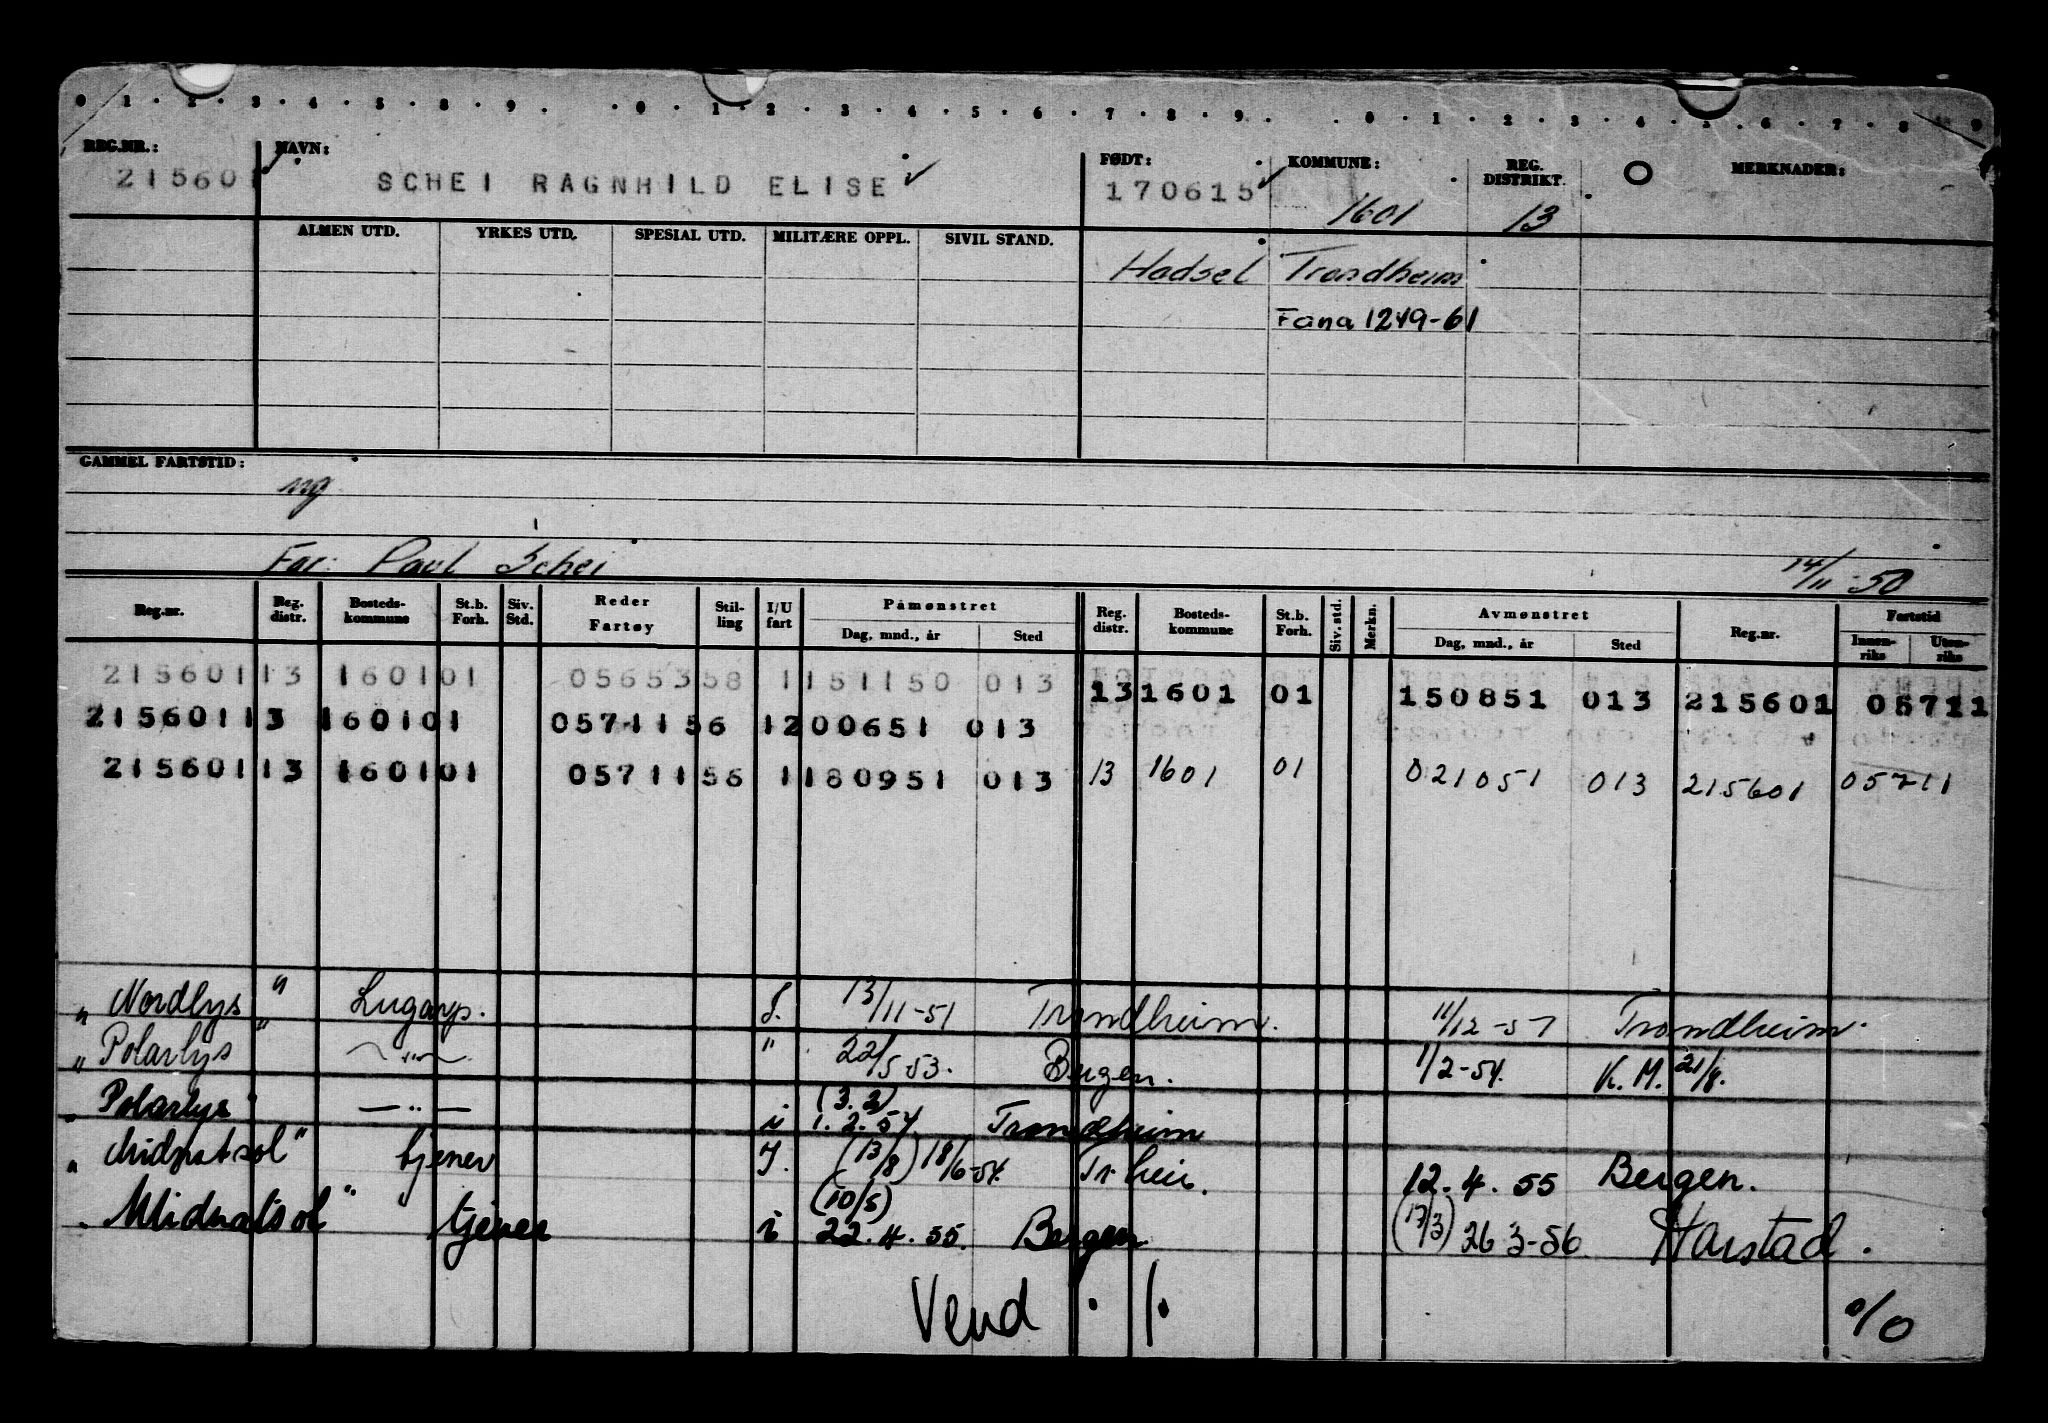 0 1 2 3 4 5 8 9 0 1 2 3 4 5 6 7 8 9 0 1 2 3 4 5 6 7 8 9
REG.NR.: NAVN: FØDT: KOMMUNE: REG. DISTRIKT. O MERKNADER:
215601 SCHEI RAGNHILD ELISE 170615 1601 13
ALMEN UTD. YRKES UTD. SPESIAL UTD. MILITÆRE OPPL. SIVIL STAND.
Hadsel Trondheim
Fana 1249-61
GAMMEL FARTSTID:
ng
Far: Paul Schei 14/11-50
Reg.nr. Reg. distr. Bosteds-kommune St.b. Forh. Siv. Std. Reder Fartøy Stil-ling I/U fart Påmønstret Dag, mnd., år Sted Reg. distr. Bosteds-kommune St.b. Forh. Siv. std. Merkn. Avmønstret Dag, mnd., år Sted Reg.nr. Fartstid Innen-riks Uten-riks
215601 13 1601 01 05653 58 1 151150 013 13 1601 01 150851 013 215601 05711
215601 13 1601 01 05711 56 1 200651 013
215601 13 1601 01 05711 56 1 180951 013 13 1601 01 021051 013 215601 05711
"Nordlys" Lugarp. I. 13/11-51 Trondheim. 11/12-51 Trondheim.
"Polarlys" —"— " 22/5 53. Bergen. 1/2-54. K.M. 21/8.
"Polarlys" —"— i (3.2) 1.2.54 Trondheim
"Midnatsol" tjener I. (13/8) 18/6-54. Tr.heim. 12.4.55 Bergen.
"Midnatsol" tjener i (10/5) 22.4.55. Bergen (17/3) 26 3-56 Harstad.
Vend ./.
o/o